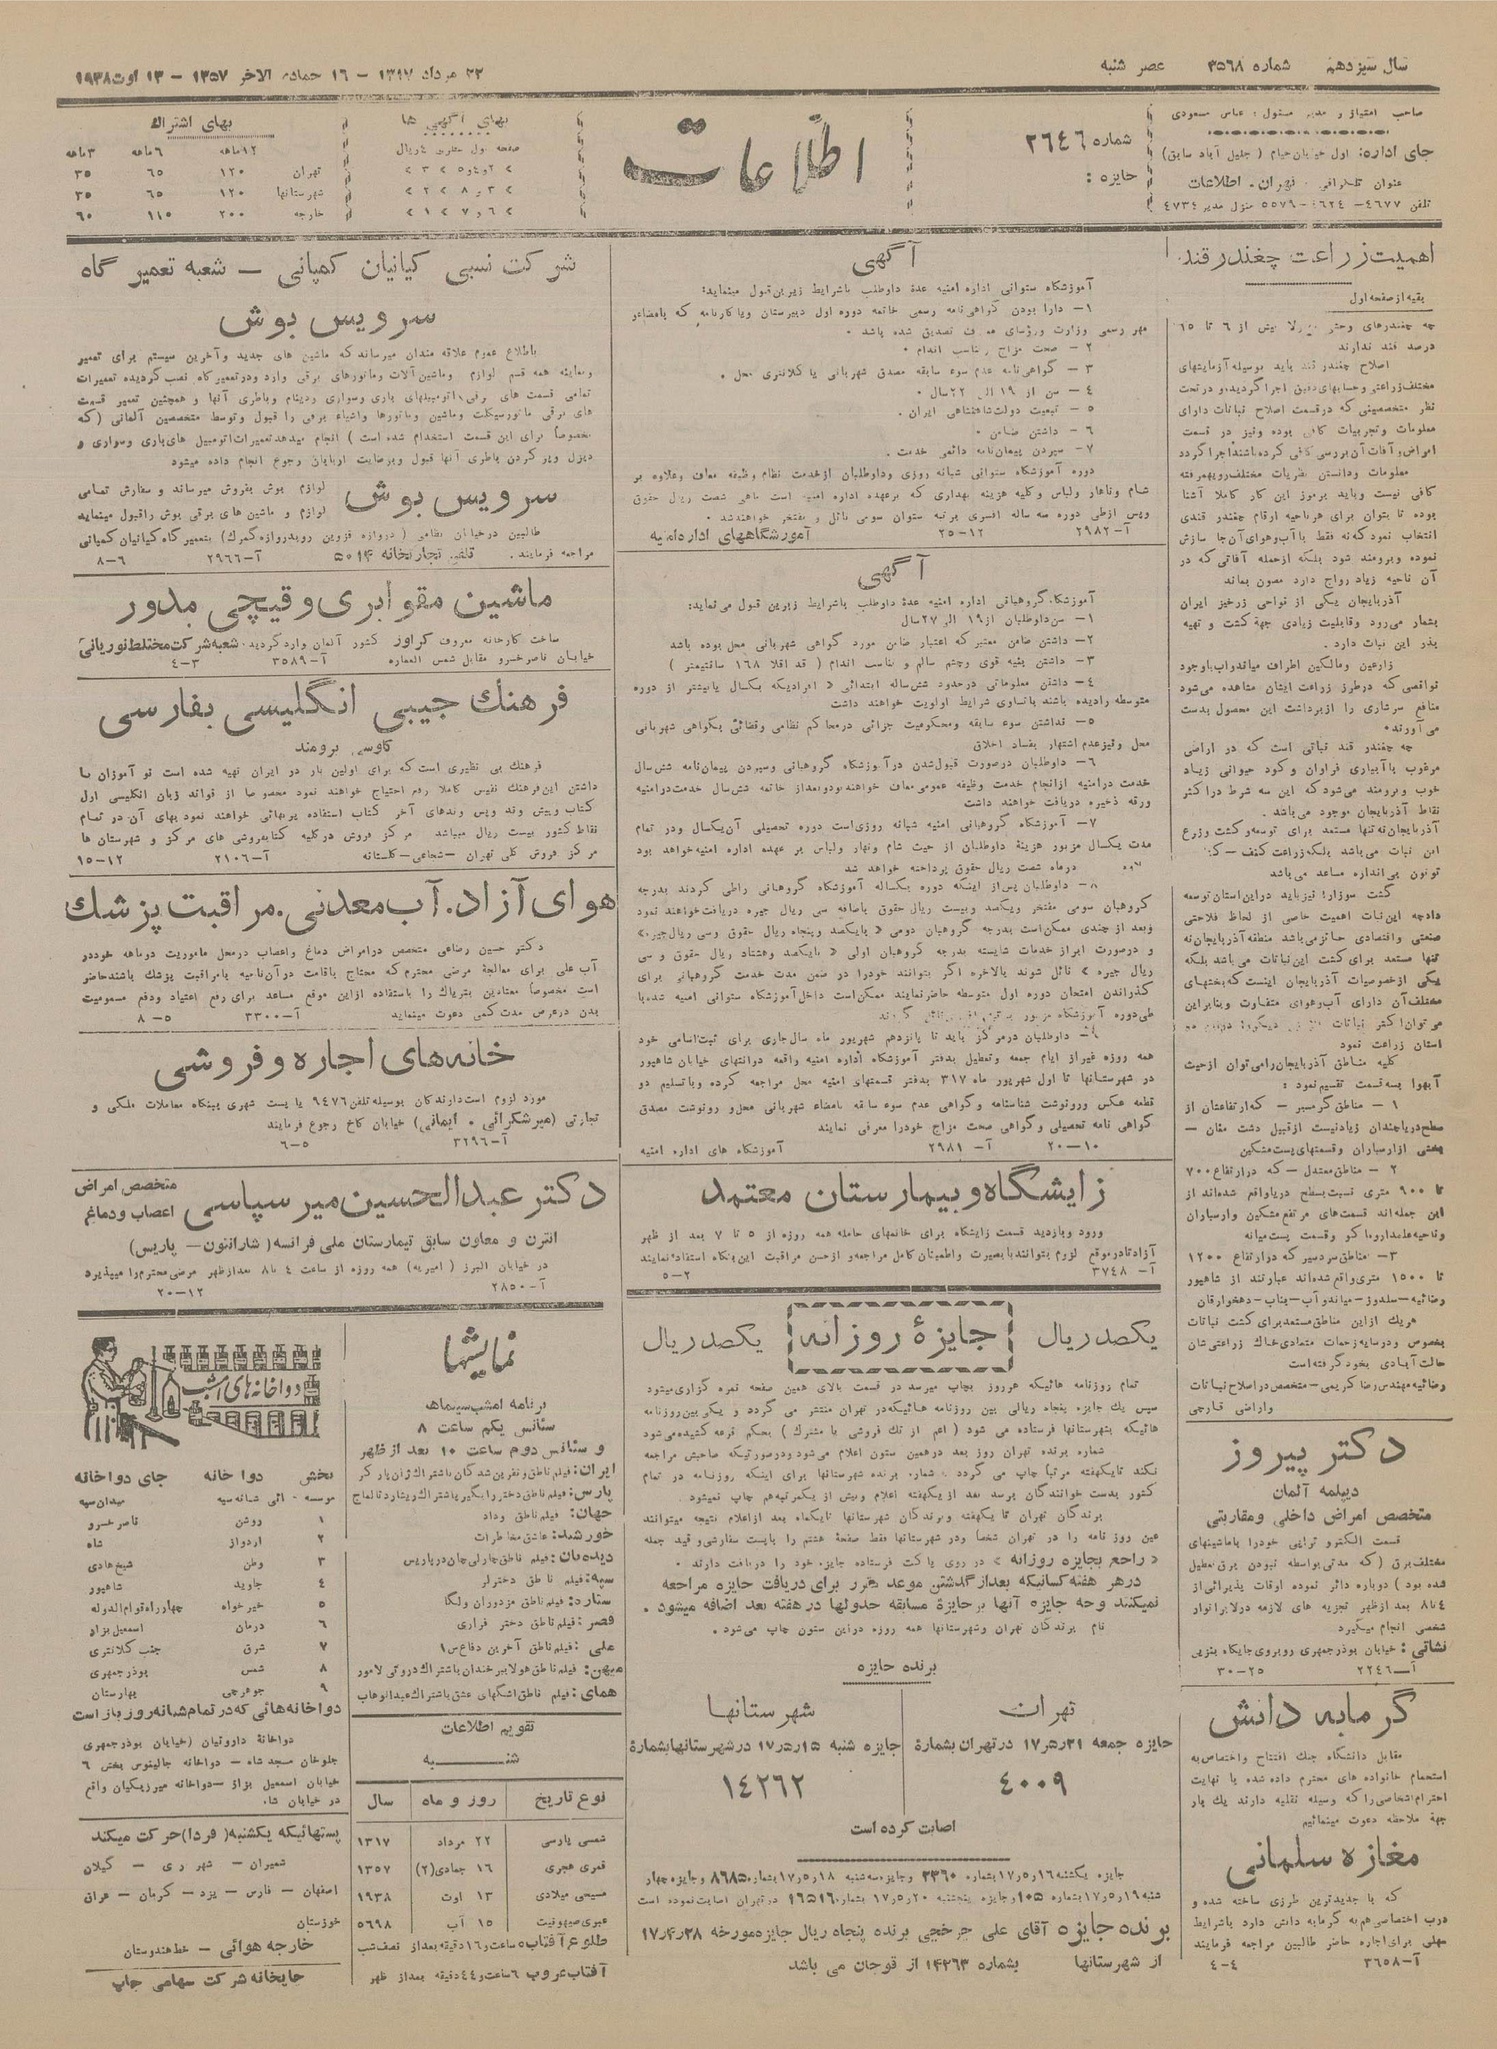 سال سیزدهم شماره ۳۵۶۸ عصر شنبه
۲۲ مرداد ۱۳۱۷ - ۱۶ جمادی الاخر ۱۳۵۷ - ۱۳ اوت ۱۹۳۸
صاحب امتیاز و مدیر مسئول : عباس مسعودی
جای اداره: اول خیابان خیام ( جلیل آباد سابق)
عنوان تلگرافی . تهران. اطلاعات
تلفن ۴۶۷۷- ۶۲۴ -۵۵۷۹ منزل مدیر ۴۷۳۴
شماره ۲۶۴۶
جایزه :
اطلاعات
بهای آگهی ها
صفحه اول سطری ۴ ریال
بهای اشتراك
۱۲ماهه ۶ماهه ۳ماهه
تهران ۱۲۰ ۶۵ ۳۵
شهرستانها ۱۲۰ ۶۵ ۳۵
خارجه ۲۰۰ ۱۱۰ ۶۰
اهمیت زراعت چغندر قند
بقیه از صفحه اول
درصد قند ندارند
اصلاح چغندر قند باید بوسیله آزمایشهای
مختلف زراعتی و حسابهای دقیق اجرا گردیده و در تحت
نظر متخصصینی که در قسمت اصلاح نباتات دارای
معلومات و تجربیات کافی بوده ونیز در قسمت
امراض و آفات آن بررسی کافی کرده باشند اجرا گردد
معلومات و دانستن نظریات مختلف رویهمرفته
کافی نیست وباید برموز این کار کاملا آشنا
بوده تا بتوان برای هر ناحیه ارقام چغندر قندی
انتخاب نمود که نه فقط با آب و هوای آن جا سازش
نموده وبرومند شود بلکه از حمله آفاتی که در
آن ناحیه زیاد رواج دارد مصون بماند
آذربایجان یکی از نواحی زرخیز ایران
بشمار می‌رود وقابلیت زیادی جهة کشت و تهیه
بذر این نبات دارد .
زارعین ومالکین اطراف میاندوآب باوجود
نواقصی که درطرز زراعت ایشان مشاهده می‌شود
منافع سرشاری را از برداشت این محصول بدست
می آورند.
چه چغندر قند نباتی است که در اراضی
مرغوب با آبیاری فراوان و کود حیوانی زیاد
خوب وبرومند می‌شود که این سه شرط در اکثر
نقاط آذربایجان موجود می‌باشد .
آذربایجان نه تنها مستعد برای توسعه و کشت وزرع
این نبات می‌باشد بلکه زراعت کنف -
توتون بی اندازه مساعد می باشد
کشت سوزا نیز باید در این استان توسعه
داد چه این نبات اهمیت خاصی از لحاظ فلاحتی
صنعتی واقتصادی حائز می باشد منطقه آذربایجان نه
تنها مستعد برای کشت این نباتات می باشد بلکه
یکی از خصوصیات آذربایجان اینست که بخشهای
مختلف آن دارای آب وهوای متفاوت وبنابراین
استان زراعت نمود
کلیه مناطق آذربایجان را می توان از حیث
آبهوا بسه قسمت تقسیم نمود :
۱ - مناطق گرمسیر - که ارتفاعشان از
سطح دریا چندان زیاد نیست از قبیل دشت مغان -
بخشی از ارسباران و قسمتهای پست مشکین
۲ - مناطق معتدل - که در ارتفاع ۷۰۰
تا ۹۰۰ متری نسبت بسطح دریا واقع شده‌اند از
این جمله‌اند قسمت‌های مرتفع مشکین وارسباران
وناحیه علمدار وماکو وقسمت پست میانه
۳- مناطق سردسیر که در ارتفاع ۱۲۰۰
تا ۱۵۰۰ متری واقع شده‌اند عبارتند از شاهپور
رضائیه - سلدوز - میاندوآب - بناب - دهخوارقان
هر یك از این مناطق مستعد برای کشت نباتات
بخصوص ودر سایه زحمات متمادی خاك زراعتی شان
حالت آبادی بخود گرفته است
رضائیه مهندس رضا کریمی - متخصص در اصلاح نباتات
واراضی قارچی
دکتر پیروز
دیپلمه آلمان
متخصص امراض داخلی ومقاربتی
قسمت الکترو تراپی خودرا با ماشینهای
مختلف برق (که مدتی بواسطه نبودن برق تعطیل
شده بود ) دوباره دائر نموده اوقات پذیرائی از
۴ تا ۸ بعد از ظهر تجزیه های لازمه در لابراتوار
شخصی انجام میگیرد
نشانی : خیابان بوذرجمهری روبروی جایگاه بنزین
آ-۲۲۴۶ ۲۵-۳۰
گرمابه دانش
مقابل دانشگاه جنك افتتاح واختصاص به
استحمام خانواده های محترم داده شده با نهایت
احترام اشخاصی را که وسیله نقلیه دارند یك بار
جهة ملاحظه دعوت مینمائیم
مغازه سلمانی
که با جدیدترین طرزی ساخته شده و
درب اختصاصی هم به گرمابه دانش دارد باشرایط
سهلی برای اجاره حاضر طالبین مراجعه فرمایند
آ-۳۶۵۸ ۴-۴
آگهی
آموزشگاه ستوانی اداره امنیه عدهٔ داوطلب باشرایط زیرین قبول مینماید:
۱- دارا بودن گواهی نامه رسمی خاتمه دوره اول دبیرستان ویا کارنامه که بامضاء و
مهر رسمی وزارت ورؤسای معارف تصدیق شده باشد .
۲ - صحت مزاج وتناسب اندام .
۳ - گواهی نامه عدم سوء سابقه مصدق شهربانی یا کلانتری محل .
۴ - سن از ۱۹ الی ۲۲ سال .
۵ - تبعیت دولت شاهنشاهی ایران .
۶ - داشتن ضامن .
۷- سپردن پیمان نامه دائمی خدمت .
دوره آموزشگاه ستوانی شبانه روزی وداوطلبان از خدمت نظام وظیفه معاف وعلاوه بر
شام وناهار ولباس وکلیه هزینه بهداری که برعهده اداره امنیه است ماهی شصت ریال حقوق
وپس ازطی دوره سه ساله افسری برتبه ستوان سومی نائل و مفتخر خواهند شد .
آ-۲۹۸۲ ۱۲-۲۵ آموزشگاههای اداره امنیه
آگهی
آموزشگاه گروهبانی اداره امنیه عدهٔ داوطلب باشرایط زیرین قبول می نماید:
۱- سن داوطلبان از ۱۹ الی ۲۷ سال
۲- داشتن ضامن معتبر که اعتبار ضامن مورد گواهی شهربانی محل بوده باشد
۳- داشتن بنیه قوی وچشم سالم و تناسب اندام ( قد اقلا ۱۶۸ سانتیمتر )
۴- داشتن معلوماتی درحدود شش ساله ابتدائی « افرادیکه یکسال یابیشتر از دوره
متوسطه رادیده باشند باتساوی شرایط اولویت خواهند داشت
۵- نداشتن سوء سابقه ومحکومیت جزائی درمحاکم نظامی وقضائی بگواهی شهربانی
محل ونیز عدم اشتهار بفساد اخلاق
۶- داوطلبان درصورت قبول شدن در آموزشگاه گروهبانی وسپردن پیمان نامه شش سال
خدمت درامنیه ازانجام خدمت وظیفه عمومی معاف خواهند بود وبعداز خاتمه شش سال خدمت درامنیه
ورقه ذخیره دریافت خواهند داشت
۷- آموزشگاه گروهبانی امنیه شبانه روزی است دوره تحصیلی آن یکسال ودر تمام
مدت یکسال مزبور هزینهٔ داوطلبان از حیث شام ونهار ولباس بر عهده اداره امنیه خواهد بود
درماه شصت ریال حقوق پرداخته خواهد شد
۸- داوطلبان پس از اینکه دوره یکساله آموزشگاه گروهبانی راطی کردند بدرجه
گروهبان سومی مفتخر ویکصد وبیست ریال حقوق باضافه سی ریال جیره دریافت خواهند نمود
وبعد از چندی ممکن است بدرجه گروهبان دومی « بایکصد وپنجاه ریال حقوق وسی ریال جیره»
و درصورت ابراز خدمات شایسته بدرجه گروهبان اولی « بایکصد وهشتاد ریال حقوق و سی
ریال جیره » نائل شوند بالاخره اگر بتوانند خودرا در ضمن مدت خدمت گروهبانی برای
گذراندن امتحان دوره اول متوسطه حاضر نمایند ممکن است داخل آموزشگاه ستوانی امنیه شده با
داوطلبان درمرکز باید تا پانزدهم شهریور ماه سال جاری برای ثبت اسامی خود
همه روزه غیر از ایام جمعه وتعطیل بدفتر آموزشگاه اداره امنیه واقعه درانتهای خیابان شاهپور
در شهرستانها تا اول شهریور ماه ۳۱۷ بدفتر قسمتهای امنیه محل مراجعه کرده وباتسلیم دو
قطعه عکس ورونوشت شناسنامه و گواهی عدم سوء سابقه بامضاء شهربانی محل و رونوشت مصدق
گواهی نامه تحصیلی و گواهی صحت مزاج خودرا معرفی نمایند
۱۰-۲۰ آ- ۲۹۸۱ آموزشگاه های اداره امنیه
زایشگاه و بیمارستان معتمد
ورود وبازدید قسمت زایشگاه برای خانمهای حامله همه روزه از ۵ تا ۷ بعد از ظهر
آزاد تا در موقع لزوم بتوانند با بصیرت واطمینان کامل مراجعه و از حسن مراقبت این بنگاه استفاده نمایند
آ- ۳۷۴۸ ۲-۵
یکصد ریال
جایزهٔ روزانه
یکصد ریال
تمام روزنامه هائیکه هر روز بچاپ میرسد در قسمت بالای همین صفحه نمره گزاری میشود
سپس یك جایزه پنجاه ریالی بین روزنامه هائیکه در تهران منتشر می گردد و یکی بین روزنامه
هائیکه بشهرستانها فرستاده می شود ( اعم از تك فروشی یا مشترك ) بحکم قرعه کشیده می‌شود
شماره برنده تهران روز بعد درهمین ستون اعلام می‌شود ودرصورتیکه صاحبش مراجعه
نکند تا یکهفته مرتبا چاپ می گردد . شماره برنده شهرستانها برای اینکه روزنامه در تمام
کشور بدست خوانندگان برسد بعد از یکهفته اعلام وبیش از یکمرتبه هم چاپ نمیشود .
برندگان تهران تا یکهفته وبرندگان شهرستانها تا یکماه بعد از اعلام نتیجه میتوانند
عین روزنامه را در تهران شخصا ودر شهرستانها فقط صفحهٔ هشتم را با پست سفارشی و قید جمله
« راجع بجایزه روزانه » در روی پاکت فرستاده جایزه خود را دریافت دارند .
در هر هفته کسانیکه بعد از گذشتن موعد مقرر برای دریافت جایزه مراجعه
نمیکنند وجه جایزه آنها بر جایزهٔ مسابقه جدولها در هفته بعد اضافه میشود .
نام برندگان تهران وشهرستانها همه روزه دراین ستون چاپ می‌شود.
برنده جایزه
تهران
جایزه جمعه ۱۷٫۵٫۲۱ در تهران بشمارهٔ
۴۰۰۹
شهرستانها
جایزه شنبه ۱۷٫۵٫۱۵ در شهرستانها بشمارهٔ
۱۴۲۶۲
اصابت کرده است
جایزه یکشنبه ۱۷٫۵٫۱۶ بشماره ۲۳۶۰ وجایزه سه شنبه ۱۷٫۵٫۱۸ بشماره ۸۶۸۵ وجایزه چهار
شنبه ۱۷٫۵٫۱۹ بشماره ۱۰۵ وجایزه پنجشنبه ۱۷٫۵٫۲۰ بشماره ۱۶۵۱۶ در تهران اصابت نموده است
برنده جایزه آقای علی چرخچی برنده پنجاه ریال جایزه مورخه ۱۷٫۴٫۲۸
از شهرستانها بشماره ۱۴۲۶۳ از قوچان می باشد
شرکت نسبی کیانیان کمپانی - شعبه تعمیر گاه
سرویس بوش
باطلاع عموم علاقه مندان میرساند که ماشین های جدید و آخرین سیستم برای تعمیر
ومعاینه همه قسم لوازم وماشین آلات وماتورهای برقی وارد ودر تعمیرگاه نصب گردیده تعمیرات
تمامی قسمت های برقی اتومبیلهای باری وسواری ودینام وباطری آنها و همچنین تعمیر قسمت
های برقی ماتورسیکلت وماشین وماتورها واشیاء برقی را قبول وتوسط متخصصین آلمانی (که
مخصوصاً برای این قسمت استخدام شده است ) انجام میدهد تعمیرات اتومبیل های باری وسواری و
دیزل وپر کردن باطری آنها قبول وبرضایت اربابان رجوع انجام داده میشود
سرویس بوش
لوازم بوش بفروش میرساند و سفارش تمامی
لوازم و ماشین های برقی بوش را قبول مینماید
طالبین درخیابان نظامی ( دروازه قزوین روبدروازه گمرك) بتعمیرگاه کیانیان کمپانی
مراجعه فرمایند. تلفن تجارتخانه ۵۰۱۴ آ-۲۹۶۶ ۶-۸
ماشین مقوا بری و قیچی مدور
ساخت کارخانه معروف کراوز کشور آلمان وارد گردید. شعبه شرکت مختلط نوریانی
خیابان ناصرخسرو مقابل شمس العماره آ-۳۵۸۹ ۳-۴
فرهنك جیبی انگلیسی بفارسی
کاوسی برومند
فرهنك بی نظیری است که برای اولین بار در ایران تهیه شده است نو آموزان با
داشتن این فرهنك نفیس کاملا رفع احتیاج خواهند نمود مخصوصا از فوائد زبان انگلیسی اول
کتاب وپیش وند وپس وندهای آخر کتاب استفاده پربهائی خواهند نمود بهای آن در تمام
نقاط کشور بیست ریال میباشد مرکز فروش در کلیه کتابفروشی های مرکز و شهرستان ها
مرکز فروش کلی تهران - شجاعی - گلستانه آ-۲۱۰۶ ۱۲-۱۵
هوای آزاد. آب معدنی. مراقبت پزشك
دکتر حسین رضاعی متخصص درامراض دماغ واعصاب درمحل ماموریت دوماهه خود در
آب علی برای معالجه مرضی محترم که محتاج باقامت درآن ناحیه بامراقبت پزشك باشند حاضر
است مخصوصاً معتادین بتریاك را باستفاده ازاین موقع مساعد برای رفع اعتیاد ودفع مسمومیت
بدن درعرض مدت کمی دعوت مینماید آ-۳۳۰۰ ۵-۸
خانه‌های اجاره و فروشی
مورد لزوم است دارندگان بوسیله تلفن ۹۴۷۶ یا پست شهری ببنگاه معاملات ملکی و
تجارتی (میرشکرائی . ایمانی) خیابان کاخ رجوع فرمایند
آ-۳۲۹۶ ۵-۶
دکتر عبدالحسین میر سپاسی
متخصص امراض
اعصاب و دماغ
انترن و معاون سابق تیمارستان ملی فرانسه( شارانتون- پاریس)
در خیابان البرز ( امیریه) همه روزه از ساعت ۴ تا ۸ بعد از ظهر مرضی محترم را میپذیرد
آ-۲۸۵۰ ۱۲-۲۰
نمایشها
برنامه امشب سینماها
سئانس یکم ساعت ۸
و سئانس دوم ساعت ۱۰ بعد از ظهر
جهان: فیلم ناطق وداد
خورشید: عاشق مخاطرات
دیده‌بان: فیلم ناطق چارلی چان در پاریس
سپه: فیلم ناطق دختر لر
ستاره: فیلم ناطق مزدوران ولگا
قصر: فیلم ناطق دختر فراری
ملی: فیلم ناطق آخرین دفاع س۱
همای: فیلم ناطق اشگهای عشق باشتراك عبدالوهاب
تقویم اطلاعات
شنبه
نوع تاریخ روز و ماه سال
شمسی پارسی ۲۲ مرداد ۱۳۱۷
قمری هجری ۱۶ جمادی(۲) ۱۳۵۷
مسیحی میلادی ۱۳ اوت ۱۹۳۸
عبری صیهونیت ۱۵ آب ۵۶۹۸
طلوع آفتاب ۵ ساعت و ۱۶ دقیقه بعد از نصف شب
آفتاب غروب ۶ ساعت و ۴۴ دقیقه بعد از ظهر
دواخانه‌های امشب
بخش دواخانه جای دواخانه
۱ روشن ناصر خسرو
۲ اردواز شاه
۳ وطن شیخ هادی
۴ جاوید شاهپور
۵ خیرخواه چهارراه قوام الدوله
۶ درمان اسمعیل بزاز
۷ شرق جنب کلانتری
۸ شمس بوذرجمهری
۹ جورجی بهارستان
دواخانه هائی که در تمام شبانه روز باز است
دواخانهٔ داروئیان (خیابان بوذرجمهری
جلوخان مسجد شاه - دواخانه جالینوس بخش ۶
خیابان اسمعیل بزاز - دواخانه میرزیکیان واقع
در خیابان شاه.
پستهائیکه یکشنبه( فردا) حرکت میکند
شمیران - شهر ری - گیلان
اصفهان - فارس - یزد - کرمان - عراق
خوزستان
خارجه هوائی - خط هندوستان
چاپخانه شرکت سهامی چاپ